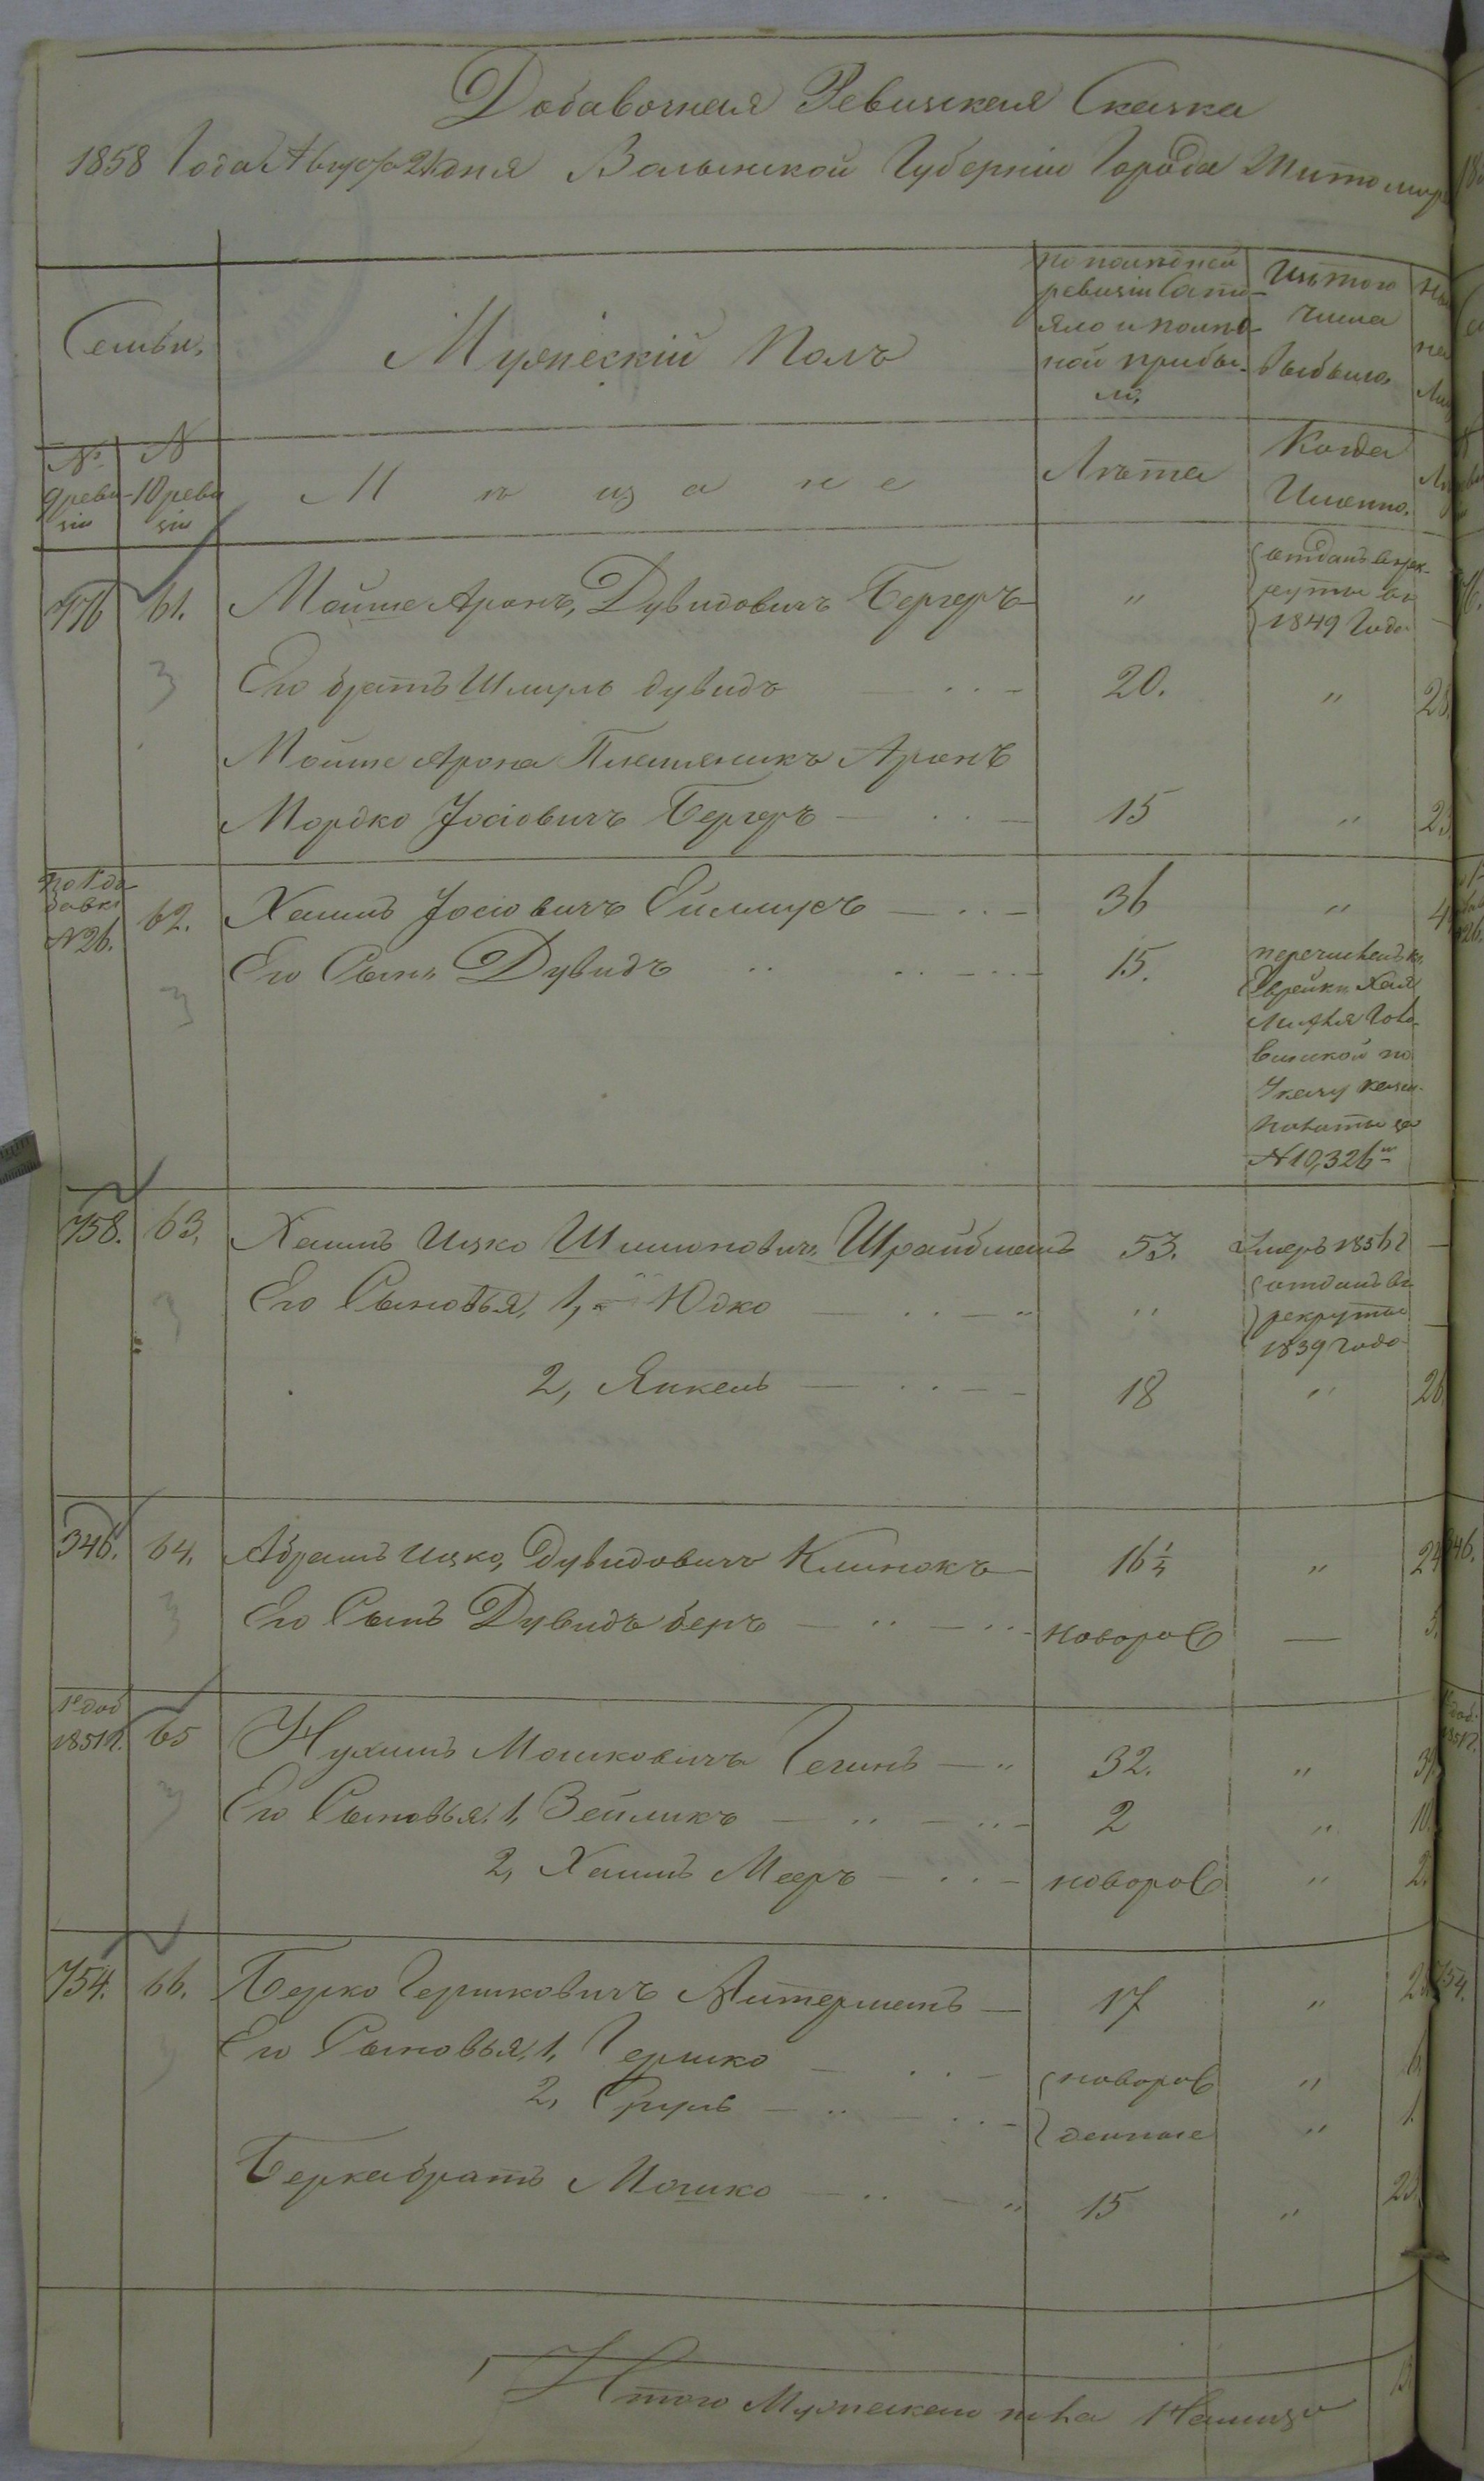 Добавочная Ревизская Сказка
1858 Года Августа 21 дня Волынской Губернии Города Житомира
Семьи.
Мужескій Полъ
по последней
ревизіи Состо-
яло и после
ной прибы-
ло,
Изъ того
числа
выбыло
№
9 реви-
зіи
№
10 реви
зіи
Мѣщане
Лѣта
Когда
Именно.
776
61.
Мойше Аронъ, Дувидовичъ Бергеръ
"
отданъ в рек-
руты въ
1849 Года
3
Его братъ Шмуль Дувидъ
20.
"
Мойше Арона Племяникъ Аронъ
Мордко Іосіовичъ Бергеръ
15
"
по 1 до-
бавке
№ 26.
62.
Хаимъ Іосіовичъ
36
"
3
Его Сынъ Дувидъ
15.
перечисленъ къ
Еврейки Хая
по
Указу казен.
палаты за
№ 10,326 м
758.
63.
Хаимъ Ицко Шимоновичъ Шрайбманъ
53.
Умеръ 1856 г
3
Его Сыновья, 1, Юдко
"
отданъ въ
рекруты
1839 года
2, Янкель
18
"
26
346.
64.
Абрамъ Ицко, Дувидовичъ Клинокъ
16½
"
24
3
Его Сынъ Дувидъ беръ
новорож
—
1е доб
1851 г.
65
Нухимъ Мошковичъ
32.
"
3
Его Сыновья, 1, Зейликъ
2
"
10.
2, Хаимъ Мееръ
новорож
"
2.
754.
66.
Берко Гершковичъ Литерманъ
17
"
3
Его Сыновья, 1, Гершко
новорож
"
2, Сруль
денные
"
1.
Берка братъ Мошко
15
"
23.
Итого Мужеска пола Налицо